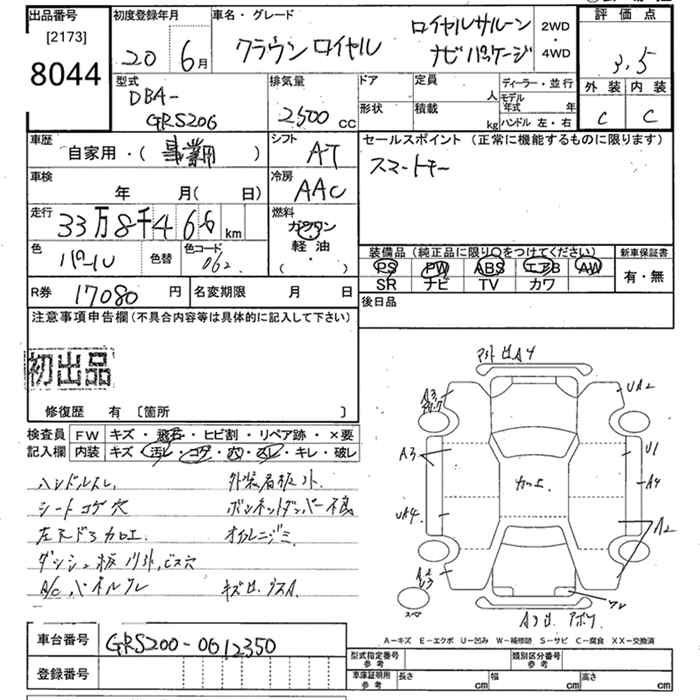 出品番号
[2173]
8044
初度登録年月
20 6月
車名・グレード
クラウン ロイヤル
ロイヤルサルーン
ナビパッケージ
2WD
・
4WD
評価点
3.5
外装 内装
C C
型式
DBA-
GRS206
排気量
2500 cc
ドア
形状
定員
人
積載
kg
ディーラー・並行
モデル
年式 年
ハンドル 左・右
車歴
自家用・( 事業用 )
シフト
AT
セールスポイント (正常に機能するものに限ります)
スマートキー
車検
年 月( 日)
冷房
AAC
走行
33万8千466km
燃料
ガソリン
軽油
( ・ )
色
パール
色替
色コード
062
装備品(純正品に限り○をつけてください)
PS PW ABS エアB AW
SR ナビ TV カワ
新車保証書
有・無
R券 17080円
名変期限 月 日
後日品
注意事項申告欄(不具合内容等は具体的に記入して下さい)
初出品
修復歴 有 [箇所 ]
検査員
記入欄
FW キズ・飛石・ヒビ割・リペア跡・×要
内装 キズ・汚レ・コゲ・穴・スレ・キレ・破レ
ハンドルスレ
シートコゲ穴
ボンネットダンパー不良
オイルニジミ
A/Cパネルワレ
A3
UA4
カエ
UA2
U1
A4
A2
ワレ
スペア
A-キズ E-エクボ U-凹み W-補修跡 S-サビ C-腐食 XX-交換済
車台番号
GRS200-0612350
登録番号
型式指定番号
参考
類別区分番号
参考
車庫証明用
参考
長さ cm
幅 cm
高さ cm